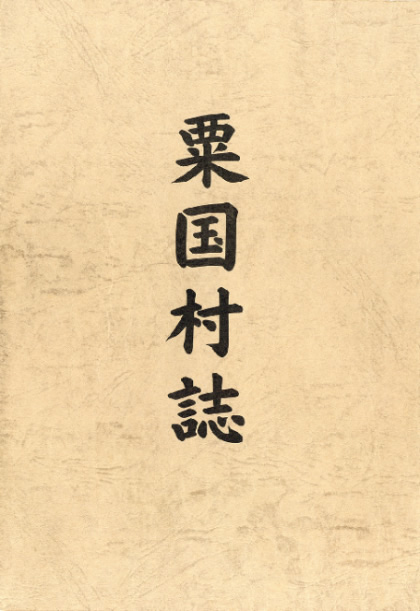 粟国村誌